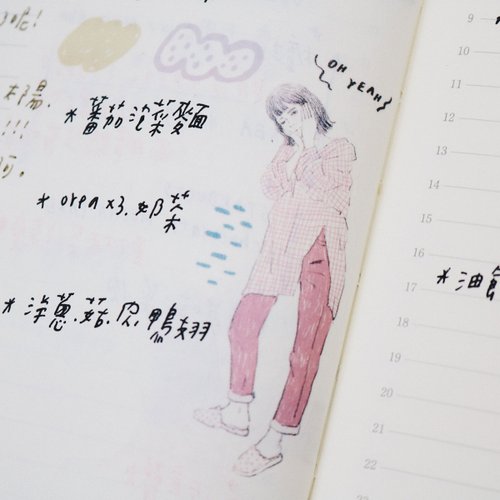 呢!
OH YEAH
*蕃茄泡菜麵
*orea x3.奶茶
*洋蔥.菇.皮.鴨翅
!!!
*油飯
9
10
11
12
13
14
15
16
17
18
19
20
21
22